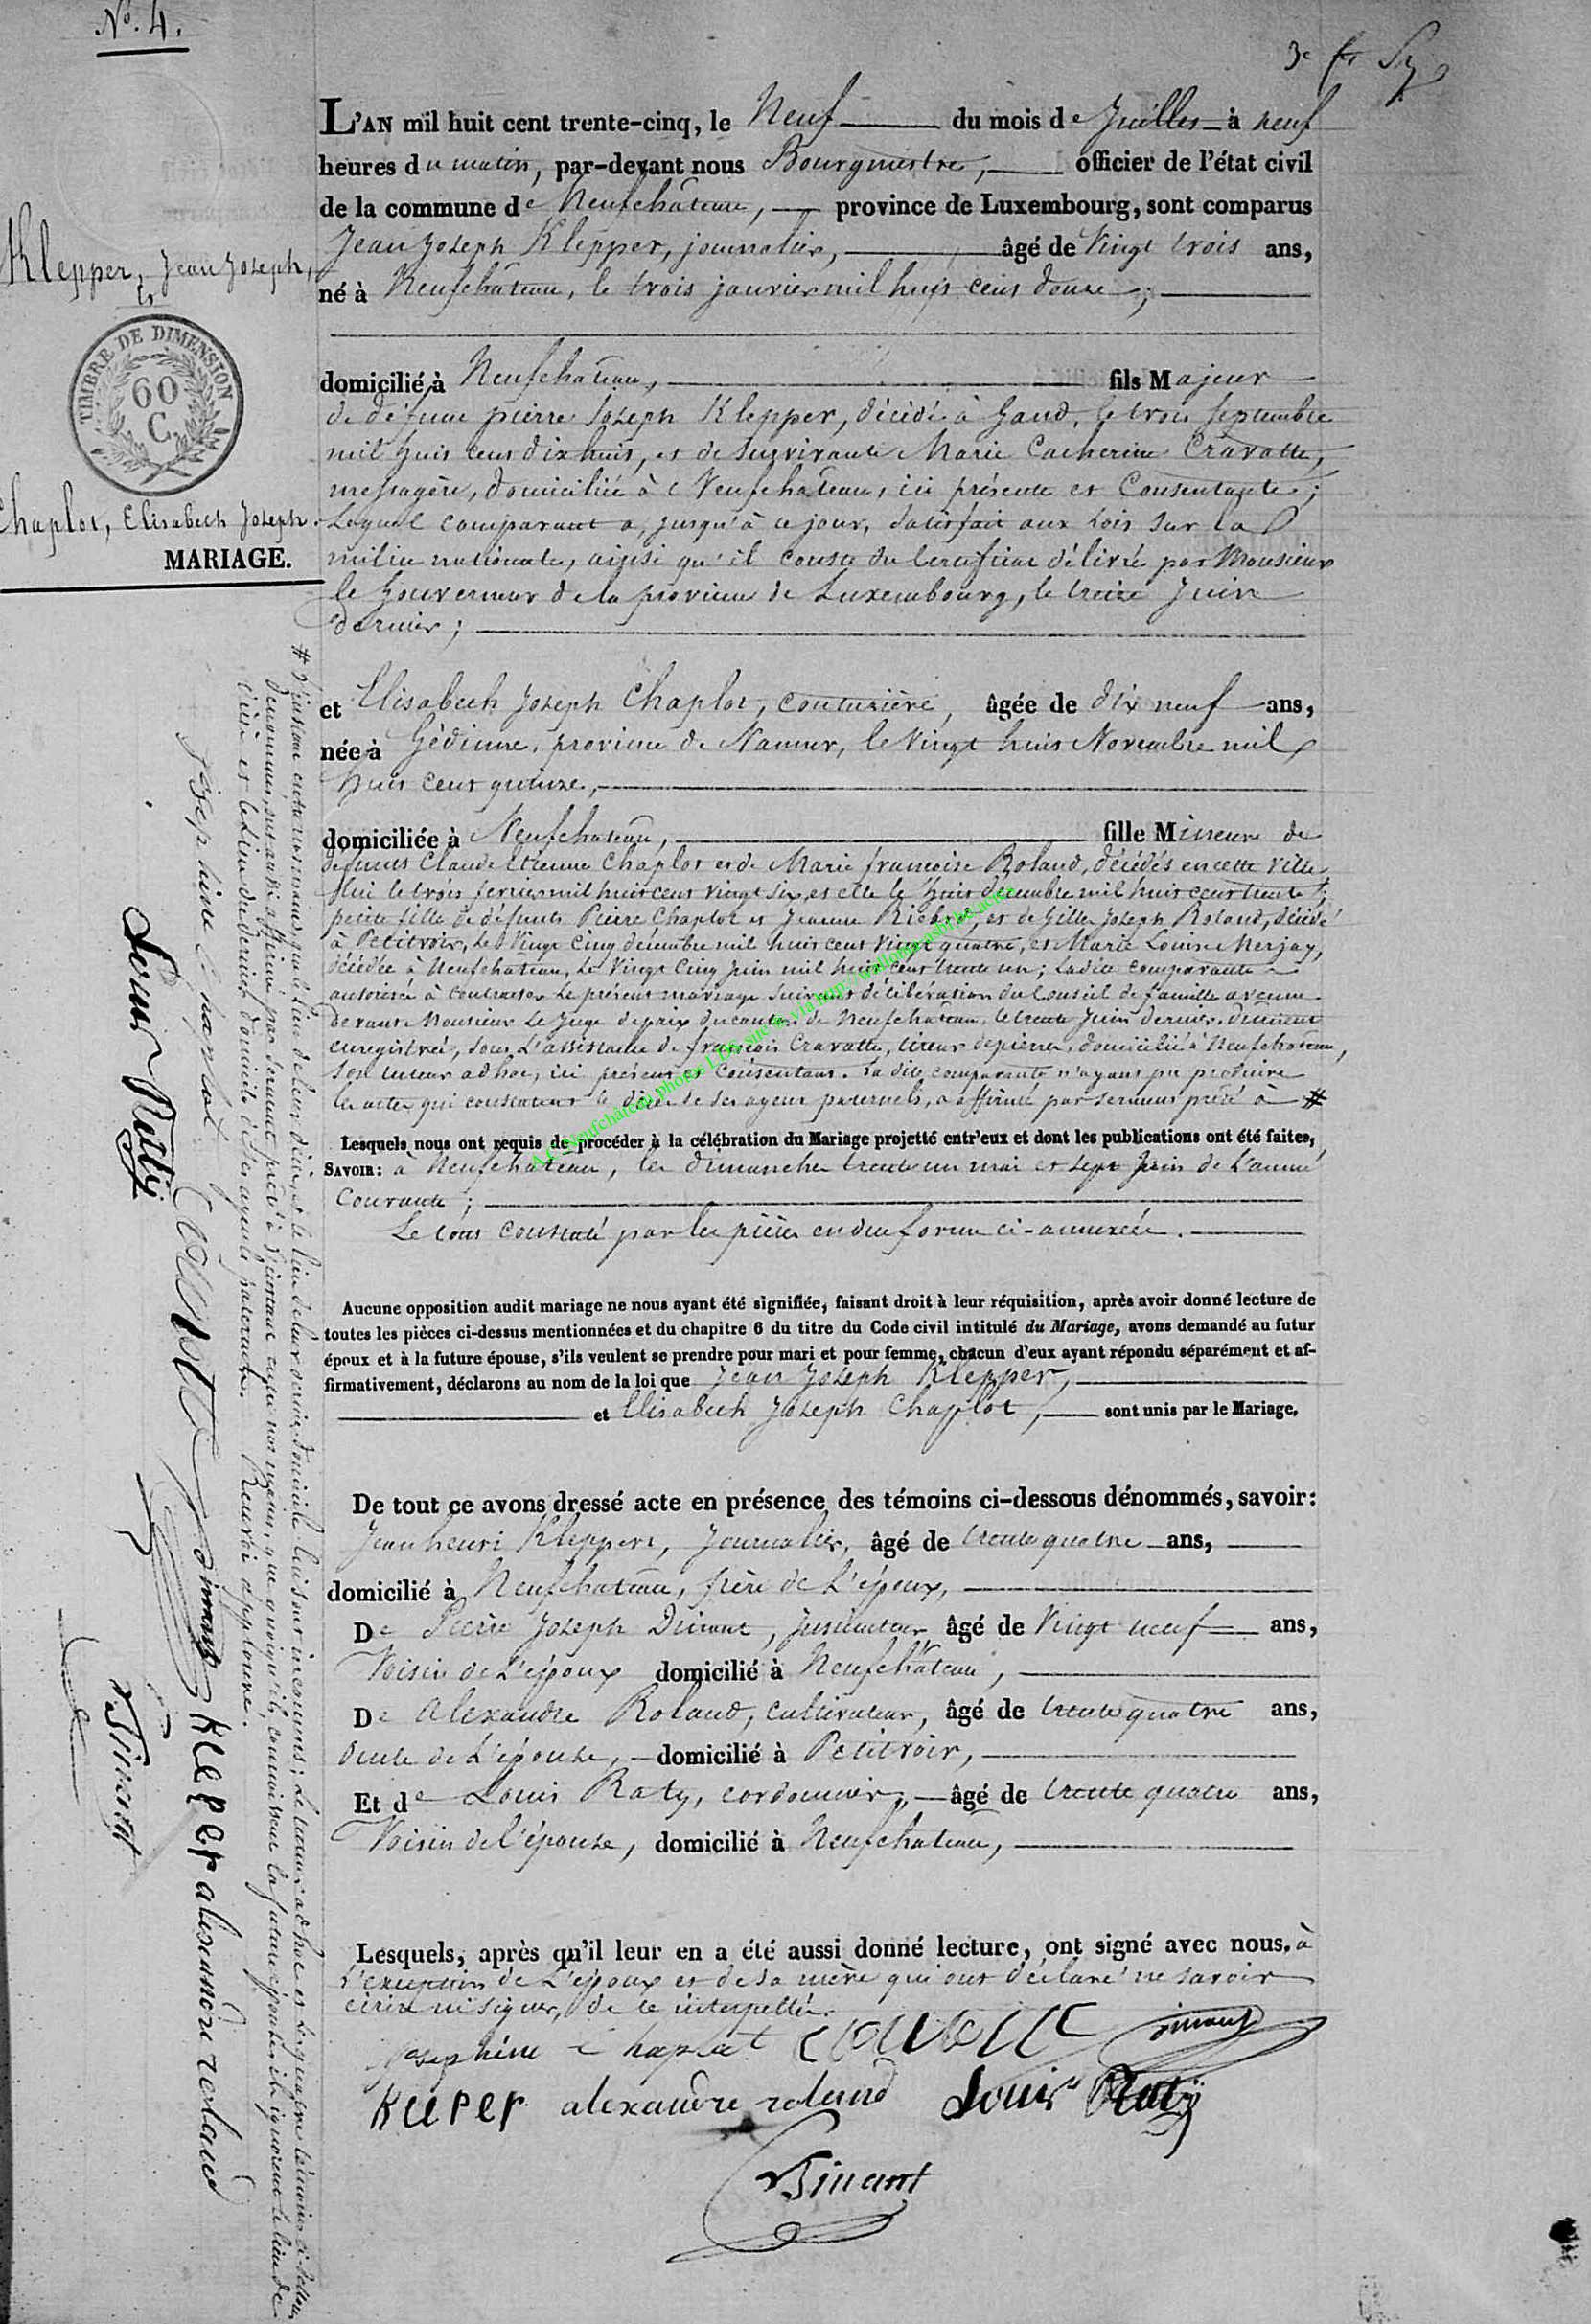 N°. 4.
3e
L'AN mil huit cent trente-cinq, le Neuf du mois de Juillet à neuf
heures du matin, par-devant nous Bourgmestre, officier de l'état civil
de la commune de Neufchâteau, province de Luxembourg, sont comparus
Jean Joseph Klepper, journalier, âgé de Vingt trois ans,
né à Neufchâteau, le trois janvier mil huit cent douze,
Klepper, Jean Joseph,
et
TIMBRE DE DIMENSION
60
C.
Chaplot, Elisabeth Joseph.
MARIAGE.
domicilié à Neufchateau, fils Majeur
de défunt pierre Joseph Klepper, décédé à Gand, le trois Septembre
mil huit cent dix huit, et de Survivante Marie Catherine Cravatte,
messagère, domiciliée à Neufchâteau, ici présente et Consentante;
Lequel comparant a, jusqu'à ce jour, Satisfait aux Lois sur la
milice nationale, ainsi qu'il conste du Certificat délivré par Monsieur
le Gouverneur de la province de Luxembourg, le treize Juin
dernier;
et Elisabeth Joseph Chaplot, couturière, âgée de dix neuf ans,
née à Gédinne, province de Namur, le Vingt huit Novembre mil
huit cent quinze,
domiciliée à Neufchateau, fille Mineure de
défunts Claude Etienne Chaplot et de Marie françoise Roland, décédés en cette Ville,
lui le trois mil huit cent vingt six, et elle le huit décembre mil huit cent trente;
petite fille de défunts Pierre Chaplot et Jeanne et de Gilles Joseph Roland, décédé
à Petitvoir, le Vingt Cinq décembre mil huit cent vingt quatre, et Marie Louise Merjay,
décédée à Neufchâteau, le Vingt Cinq Juin mil huit cent trente un; Ladite comparante
autorisée à contracter le présent mariage Suivant délibération du Conseil de famille avenue
devant Monsieur Le Juge de paix du canton de Neufchateau, le trente Juin dernier, dûment
enregistrée, sous L'assistance de françois Cravatte, tireur de pierres, domicilié à Neufchateau,
son tuteur adhoc, ici présent et Consentant. La dite comparante n'ayant pu produire
les actes qui constatent le décès de ses ayeux paternels, a affirmé par serment prêté à #
Lesquels nous ont requis de procéder à la célébration du Mariage projetté entr'eux et dont les publications ont été faites,
SAVOIR: à Neufchateau, les dimanches trente un mai et sept Juin de L'année
courante;
Le tout constaté par les pièces en due forme ci-annexées.
Aucune opposition audit mariage ne nous ayant été signifiée, faisant droit à leur réquisition, après avoir donné lecture de
toutes les pièces ci-dessus mentionnées et du chapitre 6 du titre du Code civil intitulé du Mariage, avons demandé au futur
époux et à la future épouse, s'ils veulent se prendre pour mari et pour femme, chacun d'eux ayant répondu séparément et af-
firmativement, déclarons au nom de la loi que Jean Joseph Klepper,
et Elisabeth Joseph Chaplot, sont unis par le Mariage.
De tout ce avons dressé acte en présence des témoins ci-dessous dénommés, savoir:
Jean henri Kleppert, Journalier, âgé de trente quatre ans,
domicilié à Neufchateau, frère de L'époux,
De Pierre Joseph Dinant, instituteur âgé de Vingt neuf ans,
Voisin de L'époux domicilié à Neufchâteau,
De Alexandre Roland, cultivateur, âgé de trente quatre ans,
Oncle de L'épouse, domicilié à Petitvoir,
Et de Louis Raty, cordonnier, âgé de trente quatre ans,
Voisin de l'épouse, domicilié à Neufchateau,
Lesquels, après qu'il leur en a été aussi donné lecture, ont signé avec nous, à
L'exception de L'époux et de sa mère qui ont déclaré ne savoir
écrire ni signer, de ce interpellés.
Josephine Chaplot
Kleper alexandre roland Louis Raty
# d'instance entre nos mains, que le lieu de leur décès et le lieu de leur dernier domicile lui sont inconnus; Le tuteur adhoc et les quatre témoins ci-dessous
dénommés, ont aussi affirmé par serment prêté à L'instant entre nos mains, que quoiqu'ils connoissent la future épouse ils ignorent le lieu de
décès et celui du dernier domicile de ses ayeuls paternels. Renvoi approuvé.
Josephine Chaplot Kleper alexandre roland
Louis Raty